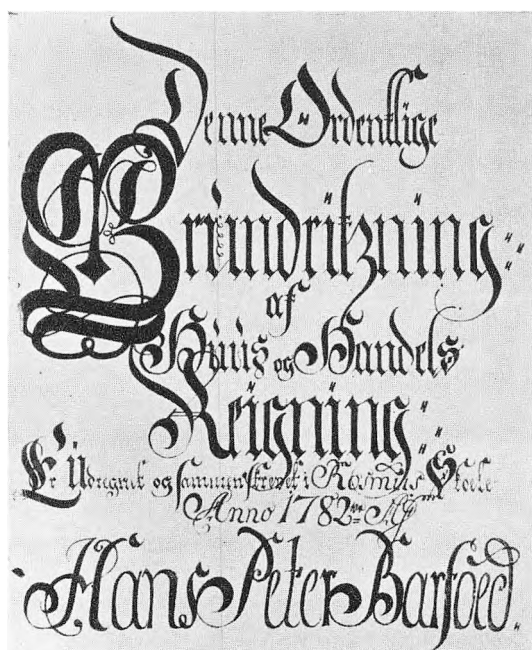 Denne Ordentlige
Grundritzning
af
Huus og Handels
Reigning
Er Udregnet og sammenskrevet i Rosmus Skoele
Anno 1782 Af
Hans Peter Barfoed.